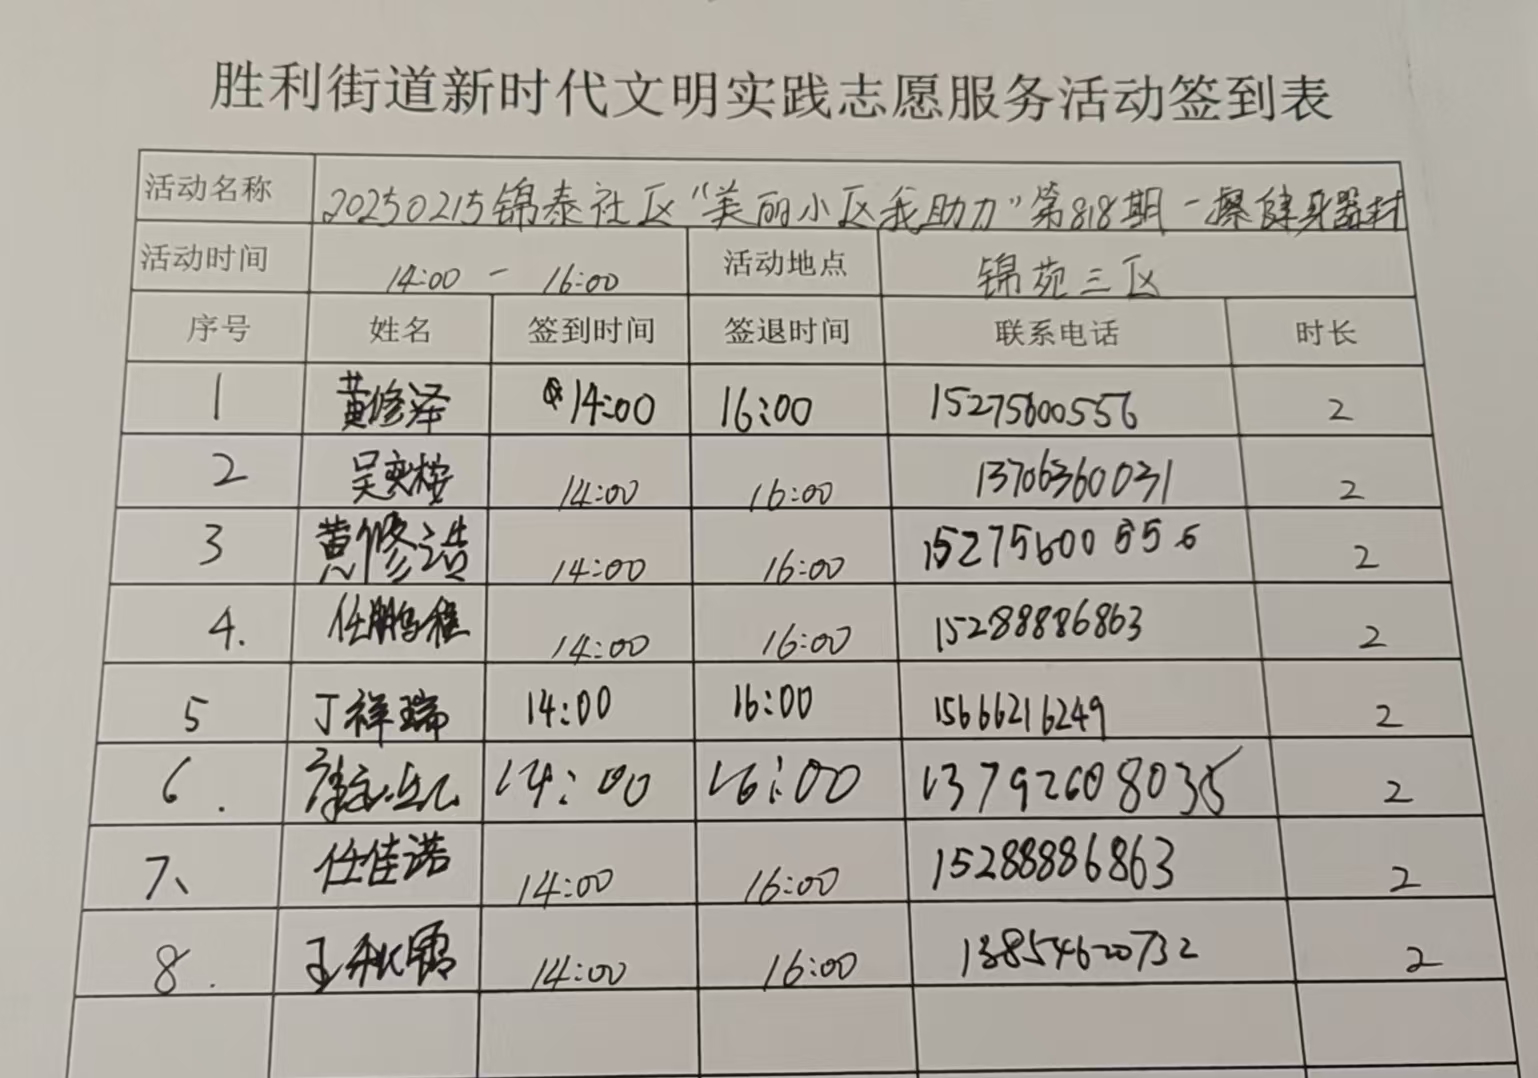 胜利街道新时代文明实践志愿服务活动签到表
活动名称 20250215锦泰社区“美丽小区我助力”第818期-擦健身器材
活动时间 14:00 - 16:00 活动地点 锦苑三区
序号 姓名 签到时间 签退时间 联系电话 时长
1 黄修泽 14:00 16:00 15275600556 2
2 吴奕桉 14:00 16:00 13706360031 2
3 黄修浩 14:00 16:00 15275600556 2
4. 任鹏程 14:00 16:00 15288886863 2
5 丁祥瑞 14:00 16:00 15666216249 2
6. 14:00 16:00 13792608035 2
7、 任佳诺 14:00 16:00 15288886863 2
8. 王秋霞 14:00 16:00 13854620732 2